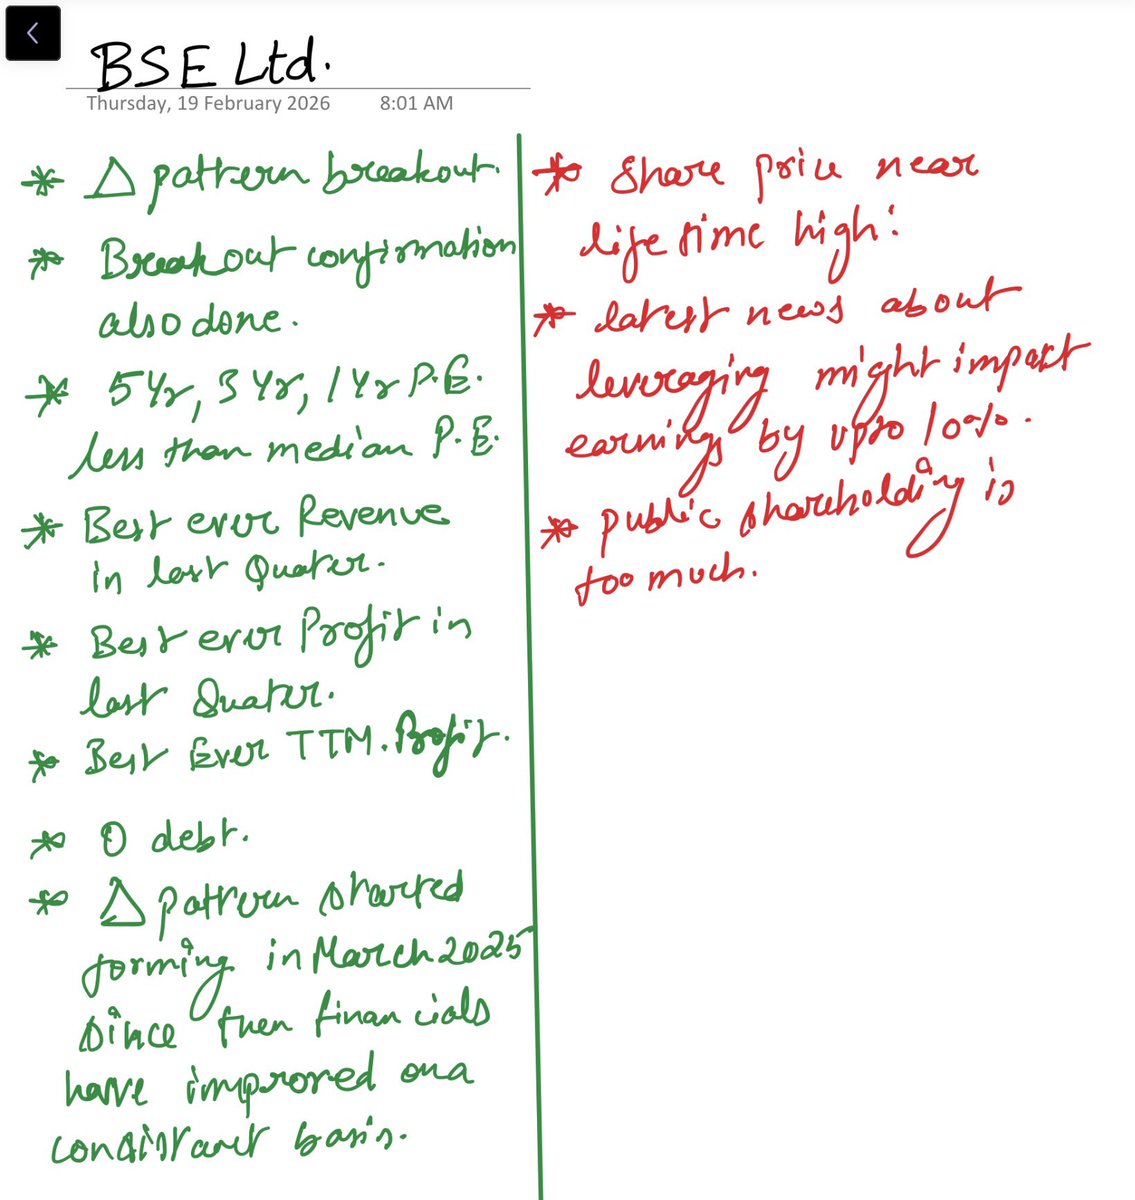 BSE Ltd.
Thursday, 19 February 2026 8:01 AM
* Δ pattern breakout.
* Breakout confirmation
also done.
* 5 Yr, 3 Yr, 1 Yr P.E.
less than median P.E.
* Best ever Revenue
in last Quater.
* Best ever Profit in
last Quater.
* Best Ever TTM. Profit.
* 0 debt.
* Δ pattern started
forming in March 2025
since then financials
have improved on a
consistant basis.
* Share price near
life time high!
* latest news about
leveraging might impact
earnings by upto 10%.
* public shareholding is
too much.